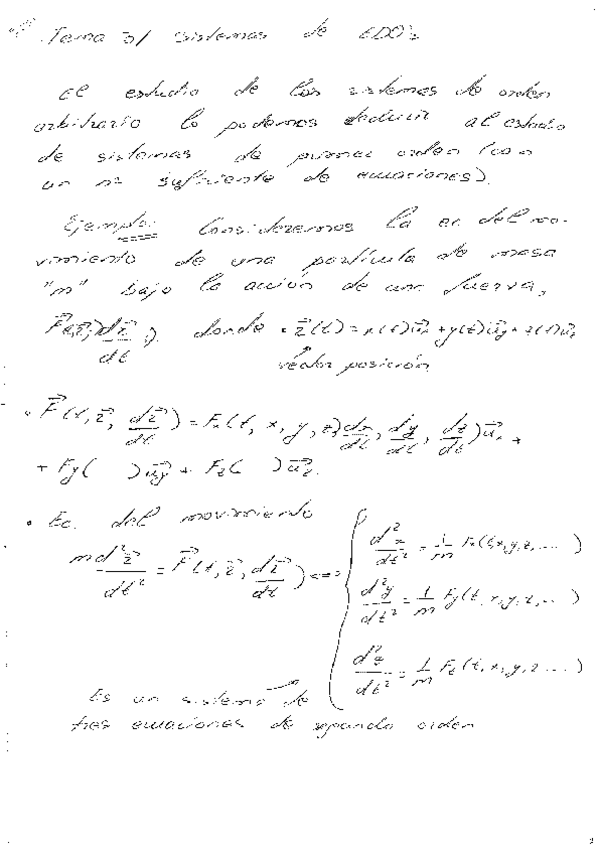 Tema 3/ Sistemas de EDO's
El estudio de los sistemas de orden
arbitrario lo podemos deducir al estudio
de sistemas de primer orden (con
un nº suficiente de ecuaciones).
Ejemplo: Consideremos la ec del mo-
vimiento de una partícula de masa
"m" bajo la acción de una fuerza,
F⃗(t, r⃗, dr⃗/dt), donde • r⃗(t) = x(t)u⃗x + y(t)u⃗y + z(t)u⃗z
vector posición
• F⃗(t, r⃗, dr⃗/dt) = Fx(t, x, y, z, dx/dt, dy/dt, dz/dt)u⃗x +
+ Fy( )u⃗y + Fz( )u⃗z.
• Ec. del movimiento
m d²r⃗/dt² = F⃗(t, r⃗, dr⃗/dt) <=> { d²x/dt² = 1/m Fx(t, x, y, z, ...)
d²y/dt² = 1/m Fy(t, x, y, z, ...)
d²z/dt² = 1/m Fz(t, x, y, z ...)
Es un sistema de
tres ecuaciones de segundo orden